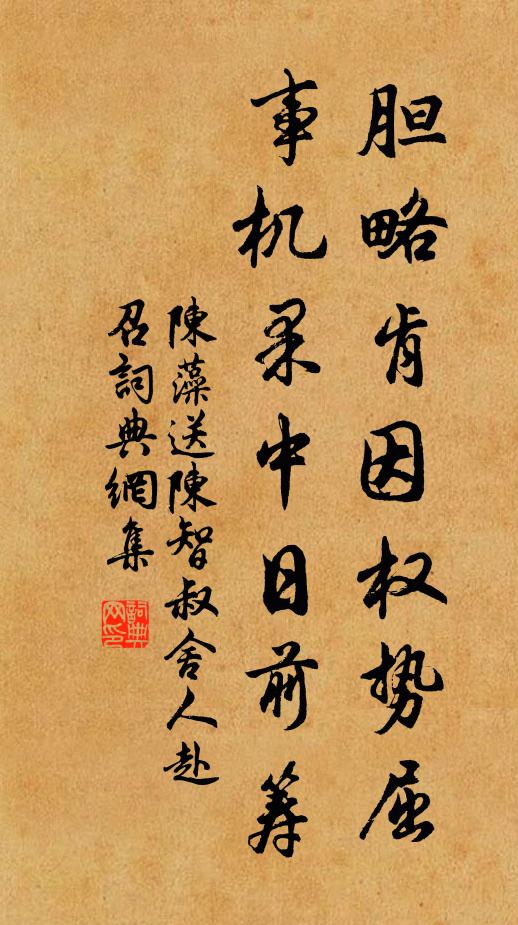 胆略肯因权势屈
事机果中日前筹
陳藻送陳智叔舍人赴
召詞典網集
詞典網印